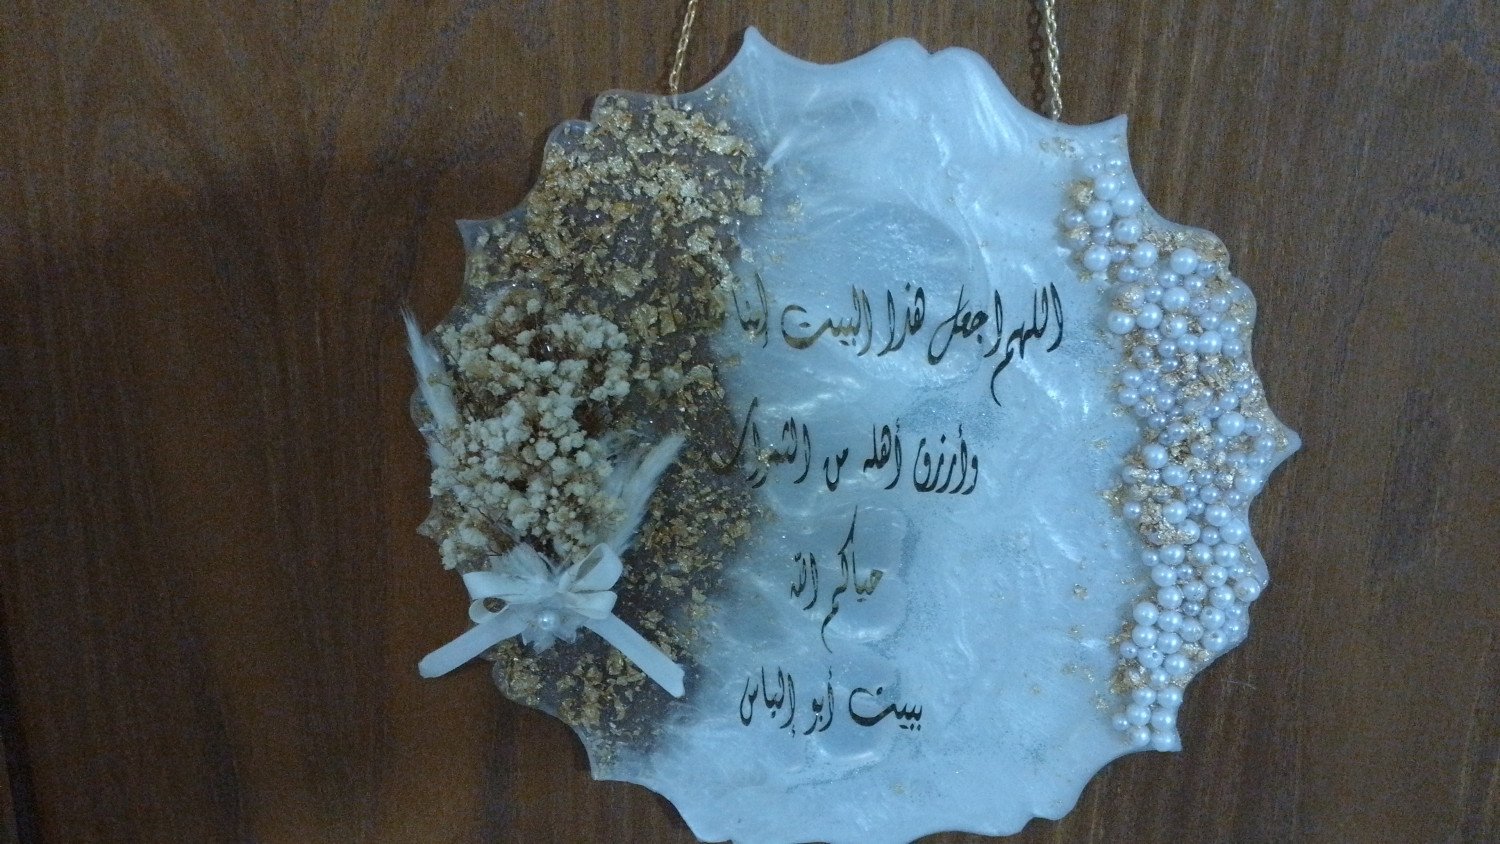 اللهم اجعل هذا البيت إمنا
وأرزق أهله من الثمرات
حياكم الله
ببيت أبو إلياس